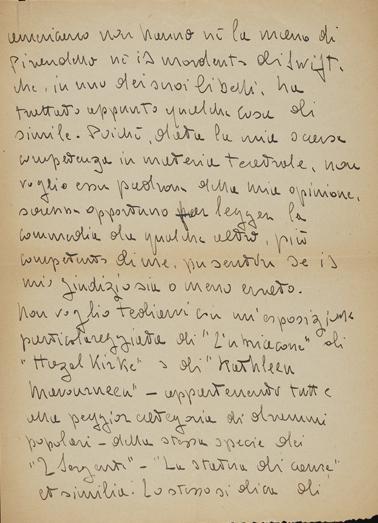 americano non hanno nè la mano di
Pirandello nè il mordente di Swift,
che, in uno dei suoi libelli, ha
trattato appunto qualche cosa di
simile. Poichè, data la mia scarsa
competenza in materia teatrale, non
voglio esser padrona della mia opinione,
opportuno far leggere la
commedia da qualche altro, più
competente di me, per sentire se il
mio giudizio sia o meno errato.
Non voglio tediarvi con un'esposizione
particolareggiata di "L'ubriacone" di
"Hazel Kirke" e di "Kathleen
Mavourneen" - appartenendo tutte
alla peggior categoria di drammi
popolari - della stessa specie dei
"2 Sergenti" - "La statua di carne"
et similia. Lo stesso si dica di